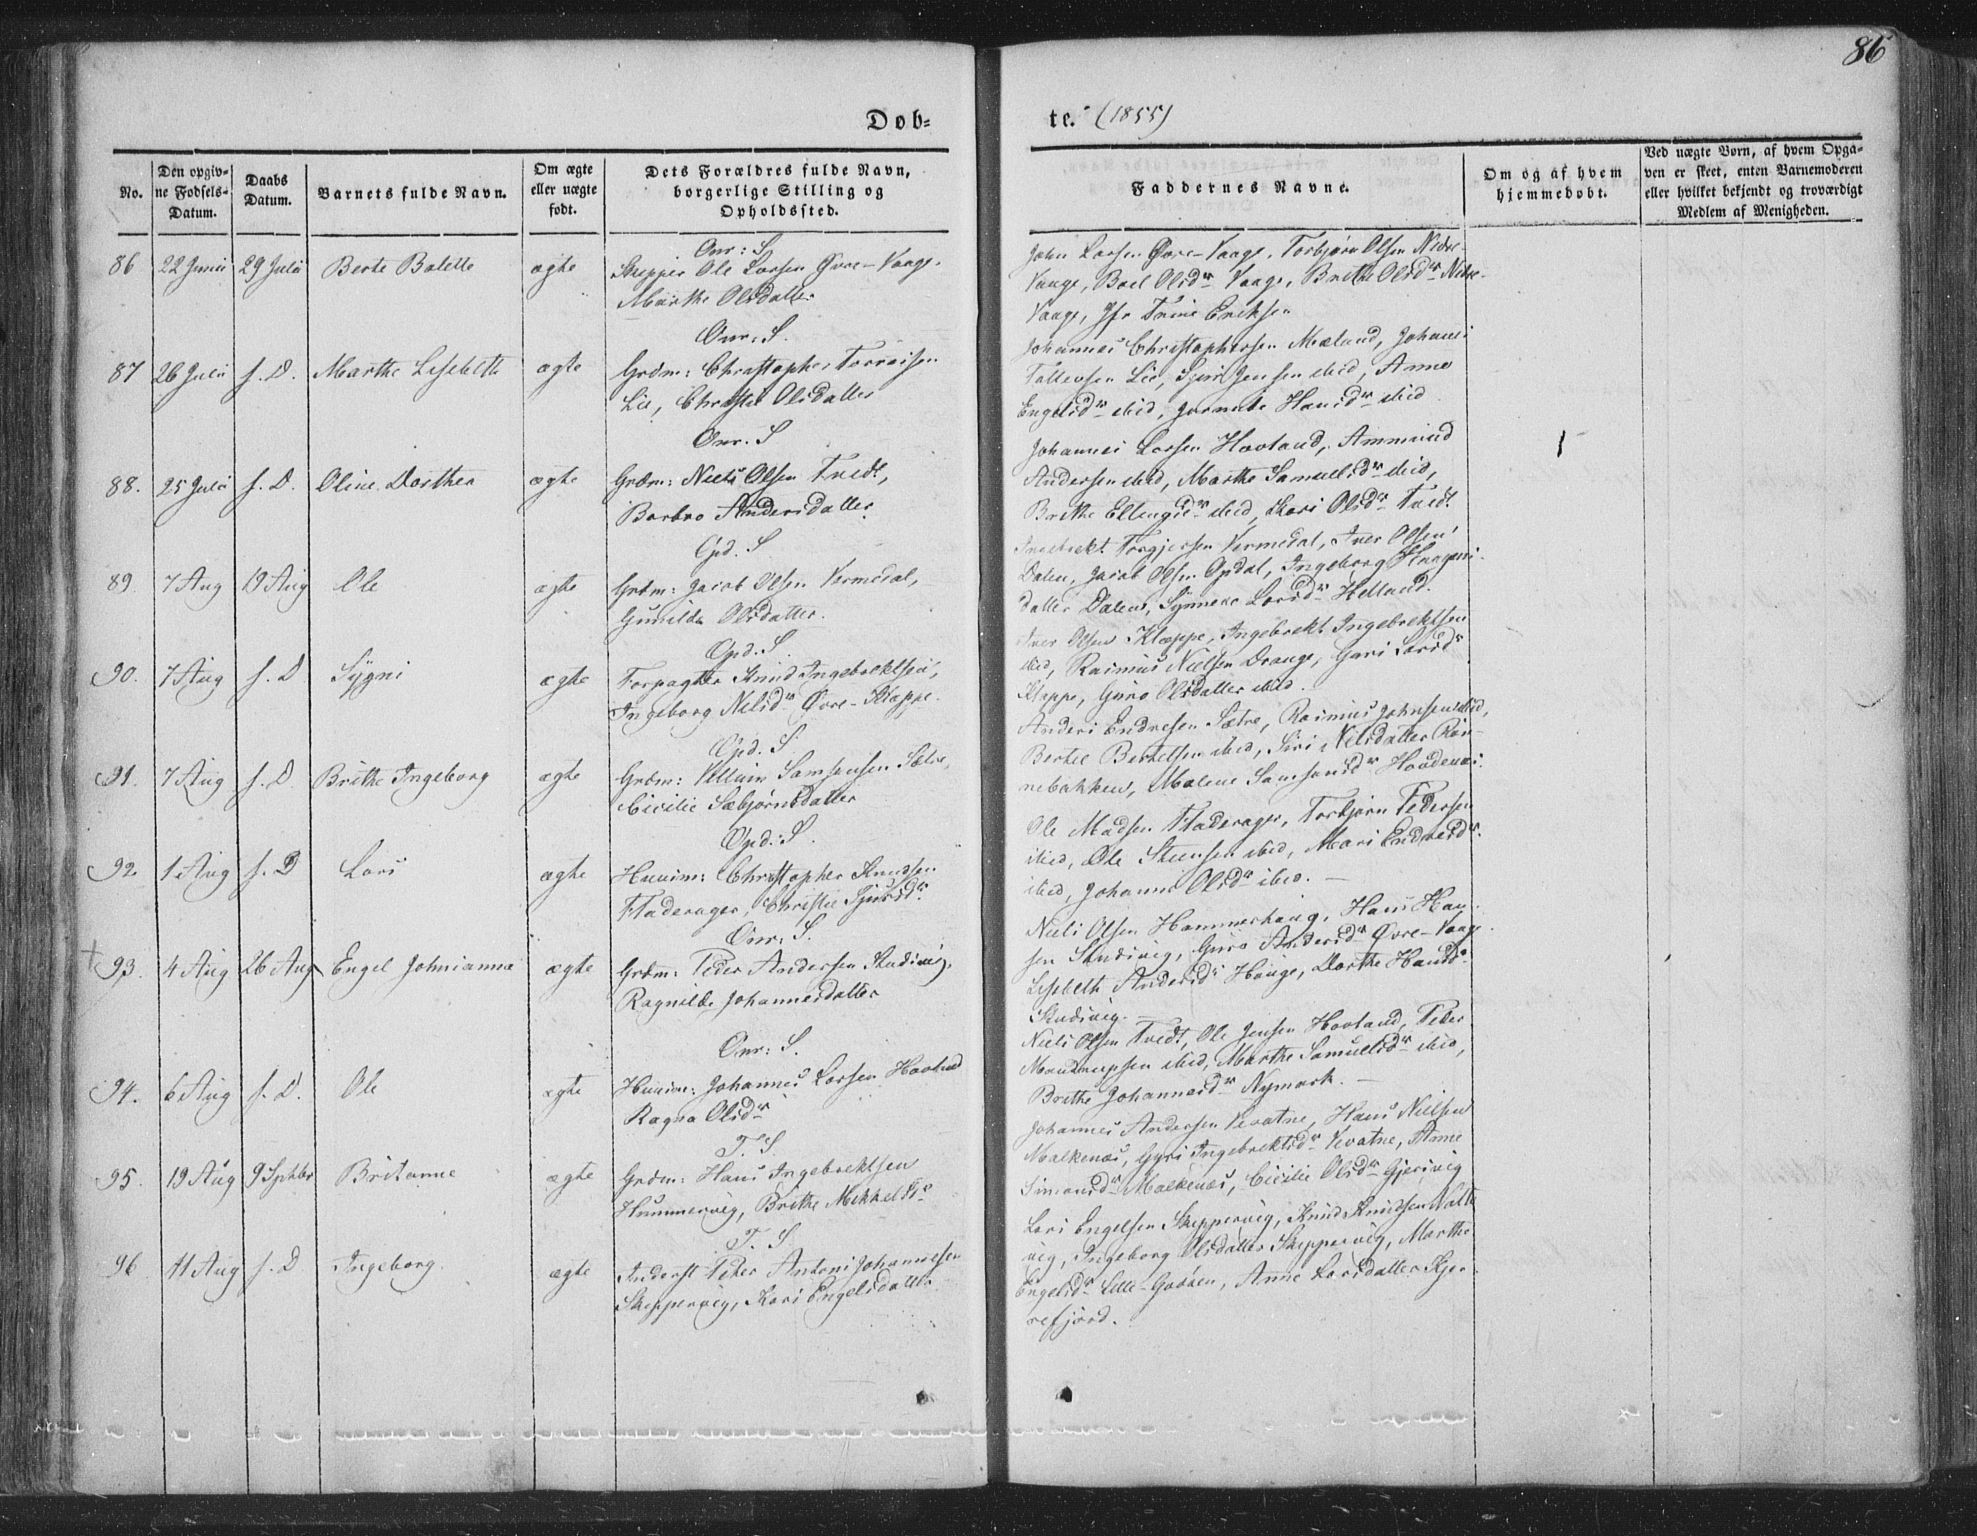 86
Døb=
te. (1855)
No.
Den opgiv-
ne Fødsels-
Datum.
Daabs
Datum.
Barnets fulde Navn.
Om ægte
eller uægte
født.
Dets Forældres fulde Navn,
borgerlige Stilling og
Opholdssted.
Faddernes Navne.
Om og af hvem
hjemmedøbt.
Ved uægte Børn, af hvem Opga-
ven er skeet, enten Barnemoderen
eller hvilket bekjendt og troværdigt
Medlem af Menigheden.
Onr: S.
86 22 Junii 29 Julii Berte Bolette ægte Skipper Ole Larsen Øvre-Vaage,
Marthe Olsdatter
John Larsen Øvre-Vaage, Torbjørn Olsen Nedre-
Vaage, Boel Olsdr Vaage, Brithe Olsdr Nedre-
Vaage, Jfr Trine Eriksen
Onr: S.
87 26 Julii s. D. Marthe Lisebeth ægte Grdm: Christopher
Lie, Christi Olsdatter
Johannes Christophersen Mæland, Johannes
Tollevsen Lie, Jensen ibid, Anne
Engelsdr ibid, Hansdr ibid
Onr. S
88. 25 Julii s. D. Oline Dorthea ægte Grdm: Niels Olsen Tvedt,
Barbro Andersdatter
Johannes Larsen Hovland, Ammund
Andersen ibid, Marthe Samuelsdr ibid,
Brithe Ellingsdr ibid, Kari Olsdr Tvedt
Opd. S
89. 7 Aug 19 Aug Ole ægte Grdm: Jacob Olsen Vermedal,
Gunilda Olsdatter.
Ingebrekt Torgjersen Vermedal, Iver Olsen
Dalen, Jacob Olsen Opdal, Ingeborg Haagens-
datter Dalen, Synneve Larsdr Helland.
Opd. S.
90. 7 Aug s. D Sygni ægte Forpagter Knud Ingebrektsen,
Ingeborg Nilsdr Øvre-Klæppe.
Iver Olsen Klæppe, Ingebrekt Ingebrektsen
ibid, Rasmus Nielsen Drange, Guri Larsdr
Kleppe, Guro Olsdatter ibid.
Opd. S.
91. 7 Aug s. D Brithe Ingeborg ægte Grdm: Villum Samsonsen Sætre,
Cicilie Sæbjørnsdatter
Anders Endresen Sætre, Rasmus Johnsen ibid,
Bertel Bertelsen ibid, Siri Nilsdatter Røn-
nebakken, Malene Samsonsdr Hovdenes.
Opd: S.
92. 1 Aug s. D Lars ægte Huusm: Christopher Knudsen
Fladerager, Christie Sjursdr.
Ole Madsen Fladerager, Torbjørn Pedersen
ibid, Ole Steensen ibid, Mari Endresdr
ibid, Johanne Olsdr ibid. —
Onr: S.
+ 93. 4 Aug 26 Aug Engel Johnianna ægte Grdm: Peder Andersen Studivig,
Ragnilde Johannesdatter
Niels Olsen Hammerhaug, Hans Han-
sen Studivig, Guro Andersdr Øvre-Vaage.
Lisebeth Andersdr Hauge, Dorthe Hansdr
Studivig. —
Onr: S.
94. 6 Aug s. D. Ole ægte Huusm: Johannes Larsen Hovland
Ragna Olsdr
Niels Olsen Tvedt, Ole Jensen Hovland, Peder
Mandrupsen ibid, Marthe Samuelsdr ibid,
Brithe Johannesdr Nymark. —
T. S.
95. 19 Aug 9 Septbr Britanne ægte Grdm: Hans Ingebrektsen
Hummervig, Brithe Mikkelsdr
Johannes Andersen Vevatne, Hans Nielsen
Malkenæs, Gyri Ingebrektsdr Vevatne, Anne
Simonsdr Malkenæs, Cicilie Olsdr Gjersvig
T. S.
96 11 Aug s. D Ingeborg ægte Inderst Peter Antoni Johannesen
Skippervig, Kari Engelsdatter
Lars Engelsen Skippervig, Knud Knudsen
vig, Ingeborg Olsdatter Skippervig, Marthe
Engelsdr Lille-Godøen, Anne Larsdatter Skjer-
refjord.